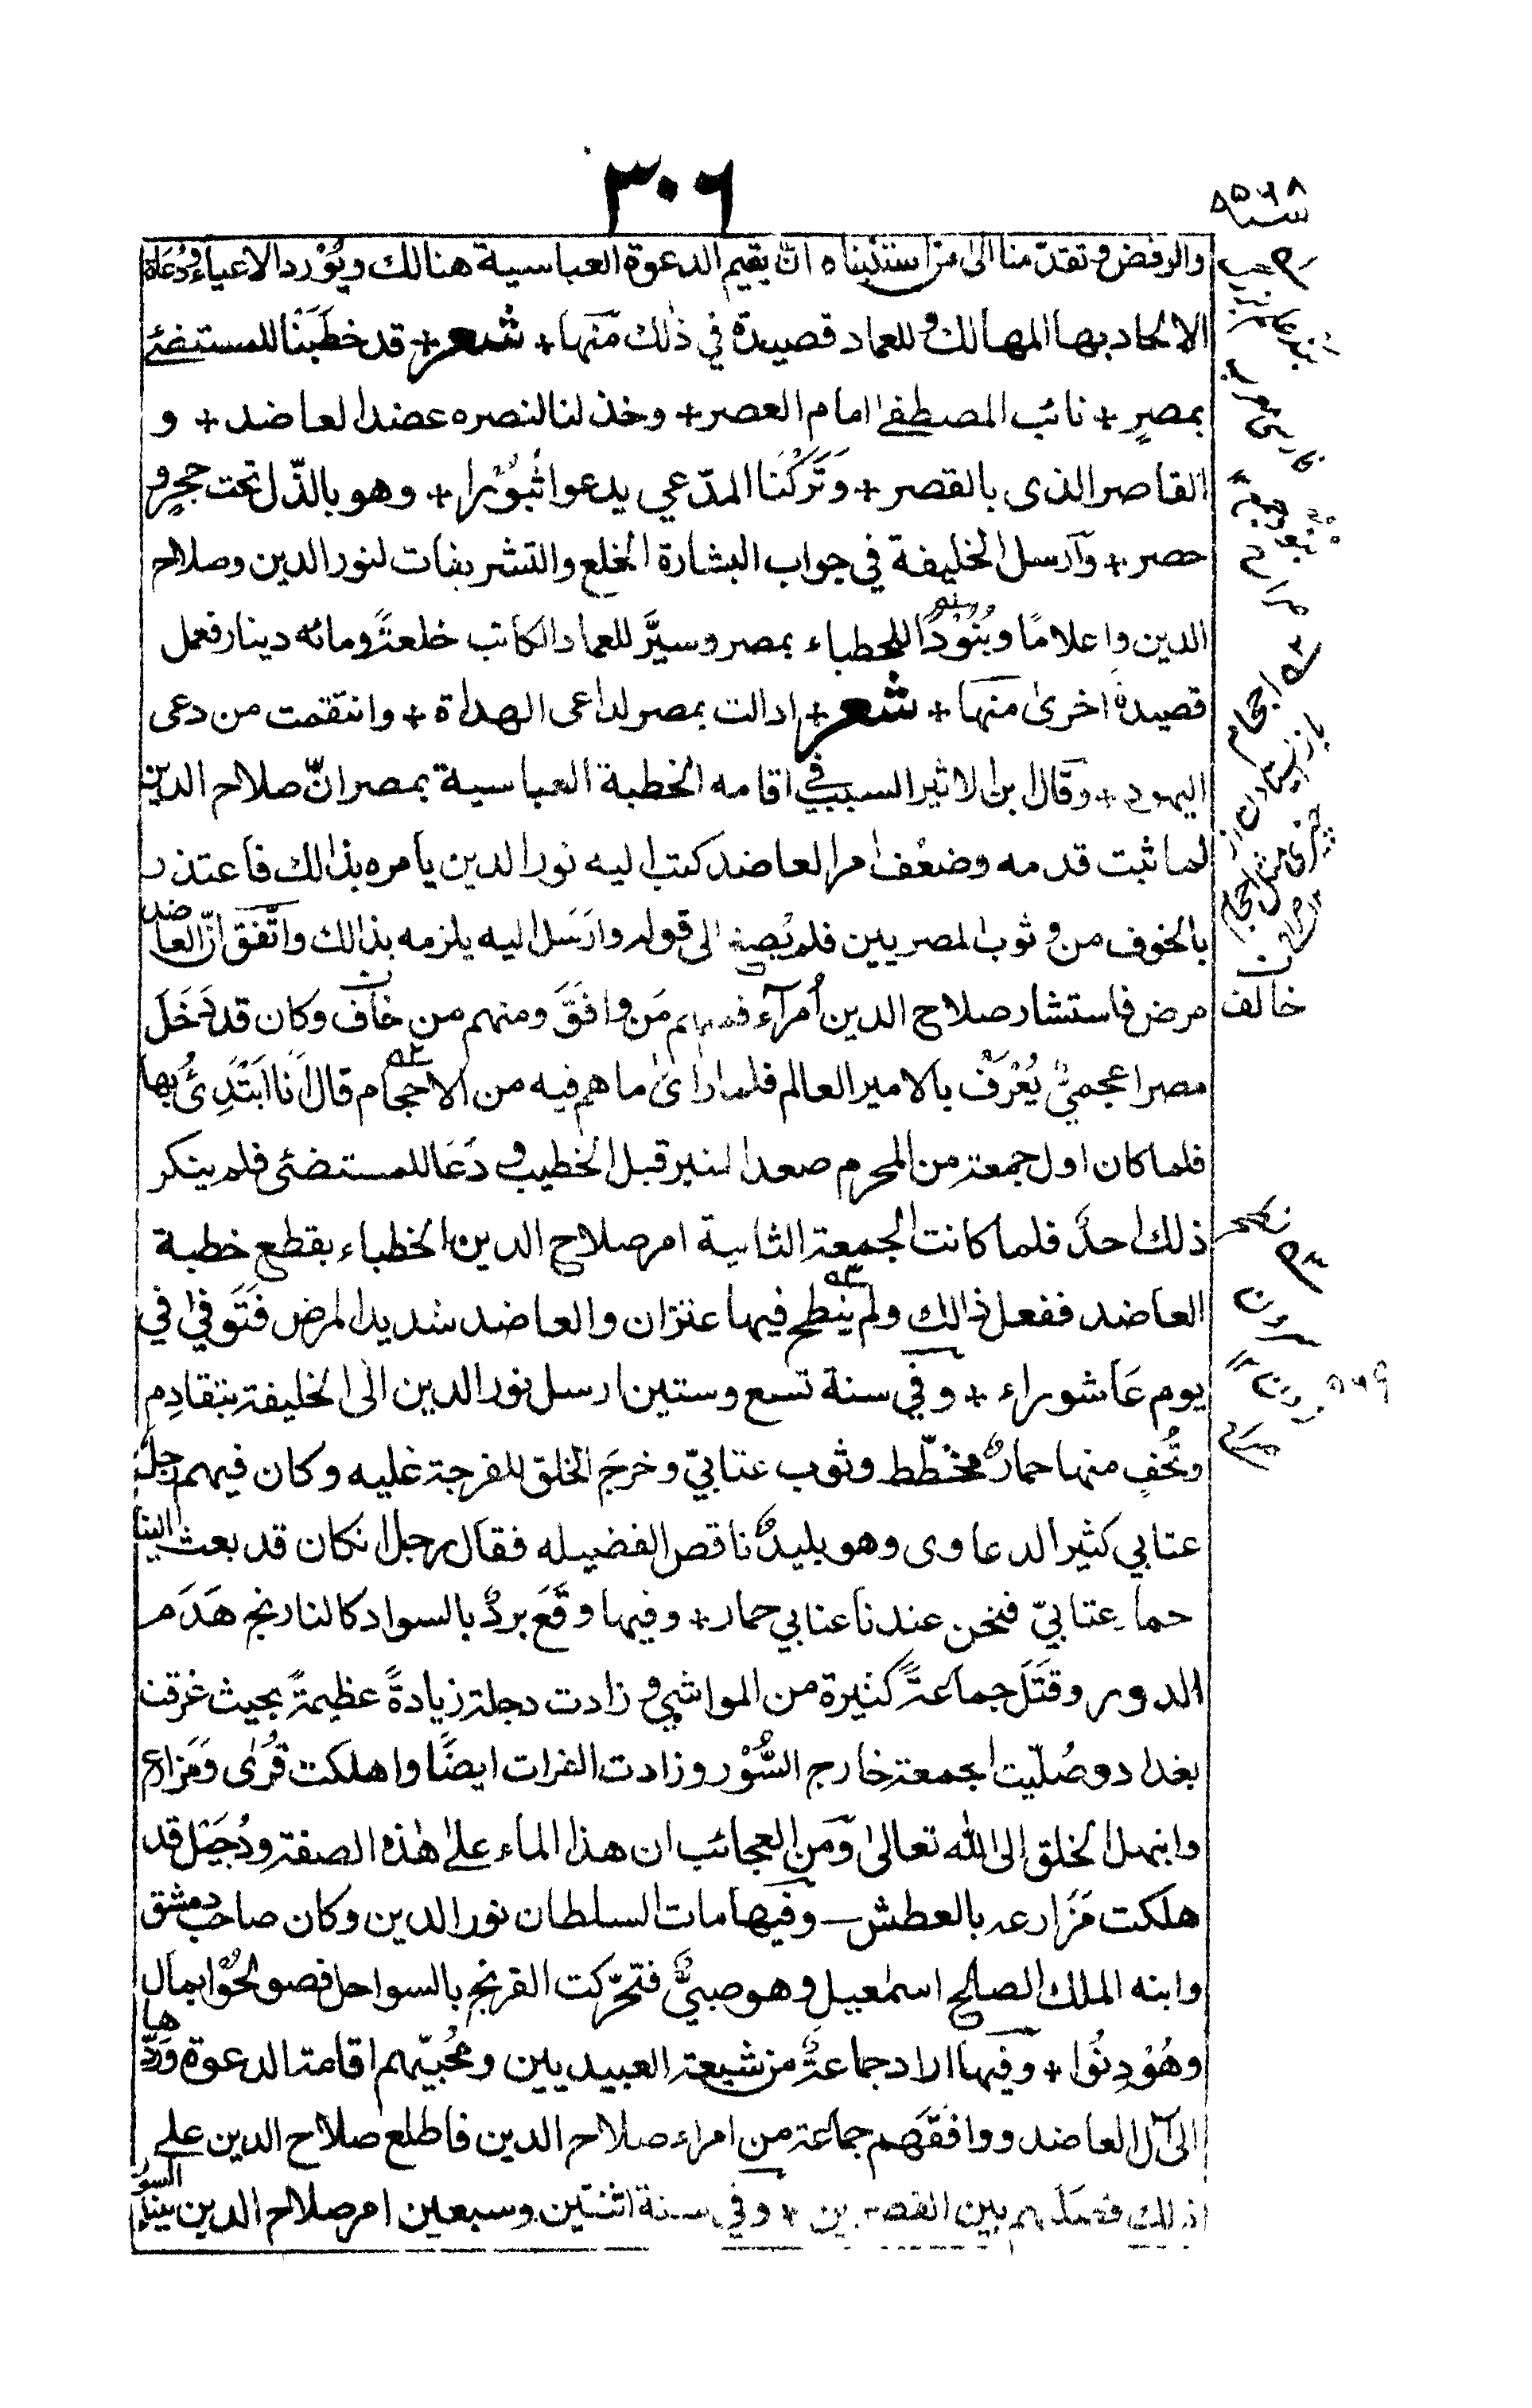 ٣٠٦
والرفض وتقدّمنا الى من استنبناه انّ يقيم الدعوة العباسية هنالك ويُوْرد الاعياء ودُعَاة
الالحاد بها المهالك وللعماد قصيدة في ذٰلك مّنها + شعر + قد خطَبَنْا للمستضئ
بمصرٍ + نائب المصطفىٰ امام العصر + وخذلنا لنصره عضد العاضد + و
القاصر الذى بالقصر + وَتَّرَكْنَا المدّعي يدعوا ثُبُوْرا + وهو بالذّل تحت حجرٍ و
حصر + وآرسل الخليفة في جواب البشارة الخلع والتشريفات لنور الدين وصلاح
الدين واعلامًا وبُنُوْدًا للخطباء بمصر وسيَّر للعماد الكاتب خلعتً ومائه دينار فعمل
قصيدة اخرىٰ منها + شعر + ادالت بمصر لداعى الهداة + وانتقمت من دعى
اليهود + وقال ابن الاثير السبب في اقامه الخطبة العباسية بمصر انّ صلاح الدين
لما ثبت قدمه وضعُف امر العاضد كتب اليه نور الدين يامره بذالك فاعتذر
بالخوف من وثوب المصريين فلم يُصغ الى قوله وارَسَل اليه يلزمه بذالك واتّفق انّ العاضد
مرض فاستشار صلاح الدين اُمرآء فمنهم مَن وافَقَ ومنهم من خاف وكان قد دَخَلَ
خالف
مصر اعجميٌ يُعْرَفْ بالامير العالم فلما راىٰ ما هم فيه من الاحجام قال اَنا ابَتَدِئُ بها
فلما كان اول جمعة من المحرم صعد المنبر قبل الخطيب ودَعَا للمستضئى فلم ينكر
ذلك احدٌ فلما كانت الجمعة الثانية امر صلاح الدين الخطباء بقطع خطبة
العاضد ففعل ذالك ولم ينطح فيها عنزان والعاضد شديد المرض فتَوفيّٰ في
يوم عَاشوراء + وفي سنة تسع وستين ارسل نور الدين الى الخليفة بتقادِم
وتُحفٍ منها حمارٌ مخطّط وثوب عتابيّ وخرجَ الخلق للفرجة عليه وكان فيهم رجل
عتابي كثير الدعاوى وهو بليدٌ ناقص الفضيله فقال رجل ان كان قد بعث الينا
حمار عتابيّ فنحن عندنا عتابي حمار + وفيها وقَعَ بردٌ بالسواد كالنارنج هَدَمَ
الدور وقَتَلَ جماعتً كثيرة من المواشي وزادت دجلة زيادةً عظيمةً بحيث غرقت
بغداد وصُلّيت الجمعة خارج السُّوْر وزادت الفرات ايضًا واهلكت قُرًى وَمَزارع
وابتهل الخلق الى اللّٰه تعالىٰ ومن العجائب ان هذا الماء علىٰ هٰذه الصفة ودُجَيل قد
هلكت مَزَارعه بالعطش – وفيها مات السلطان نور الدين وكان صاحب دمشق
وابنه الملك الصالح اسمٰعيل وهو صبيٌّ فتحرّكت الفرنج بالسواحل فصولحُوْا بمال
وهُوْدِنُوا + وفيها اراد جماعةٌ من شيعة العبيديين ومحُبيّهم اقامة الدعوة وَرَدّها
الى آل العاضد ووافَقَهم جماعة من امراء صلاح الدين فاطلع صلاح الدين على
ذلك فصلَبهم بين القصرين + وفي سنة اثنتين وسبعين امر صلاح الدين ببناء السور